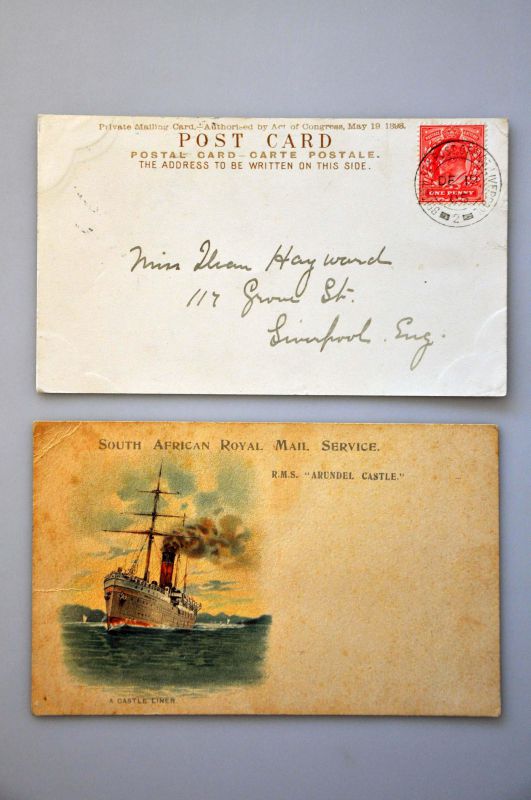 Private Mailing Card,-Authorised by Act of Congress, May 19 1898.
POST CARD
POSTAL CARD-CARTE POSTALE.
THE ADDRESS TO BE WRITTEN ON THIS SIDE.
ONE PENNY
DE
LIVERPOOL
2
Miss
Hayward
117 Grove St.
Liverpool. Eng.
SOUTH AFRICAN ROYAL MAIL SERVICE.
R.M.S. "ARUNDEL CASTLE."
A CASTLE LINER